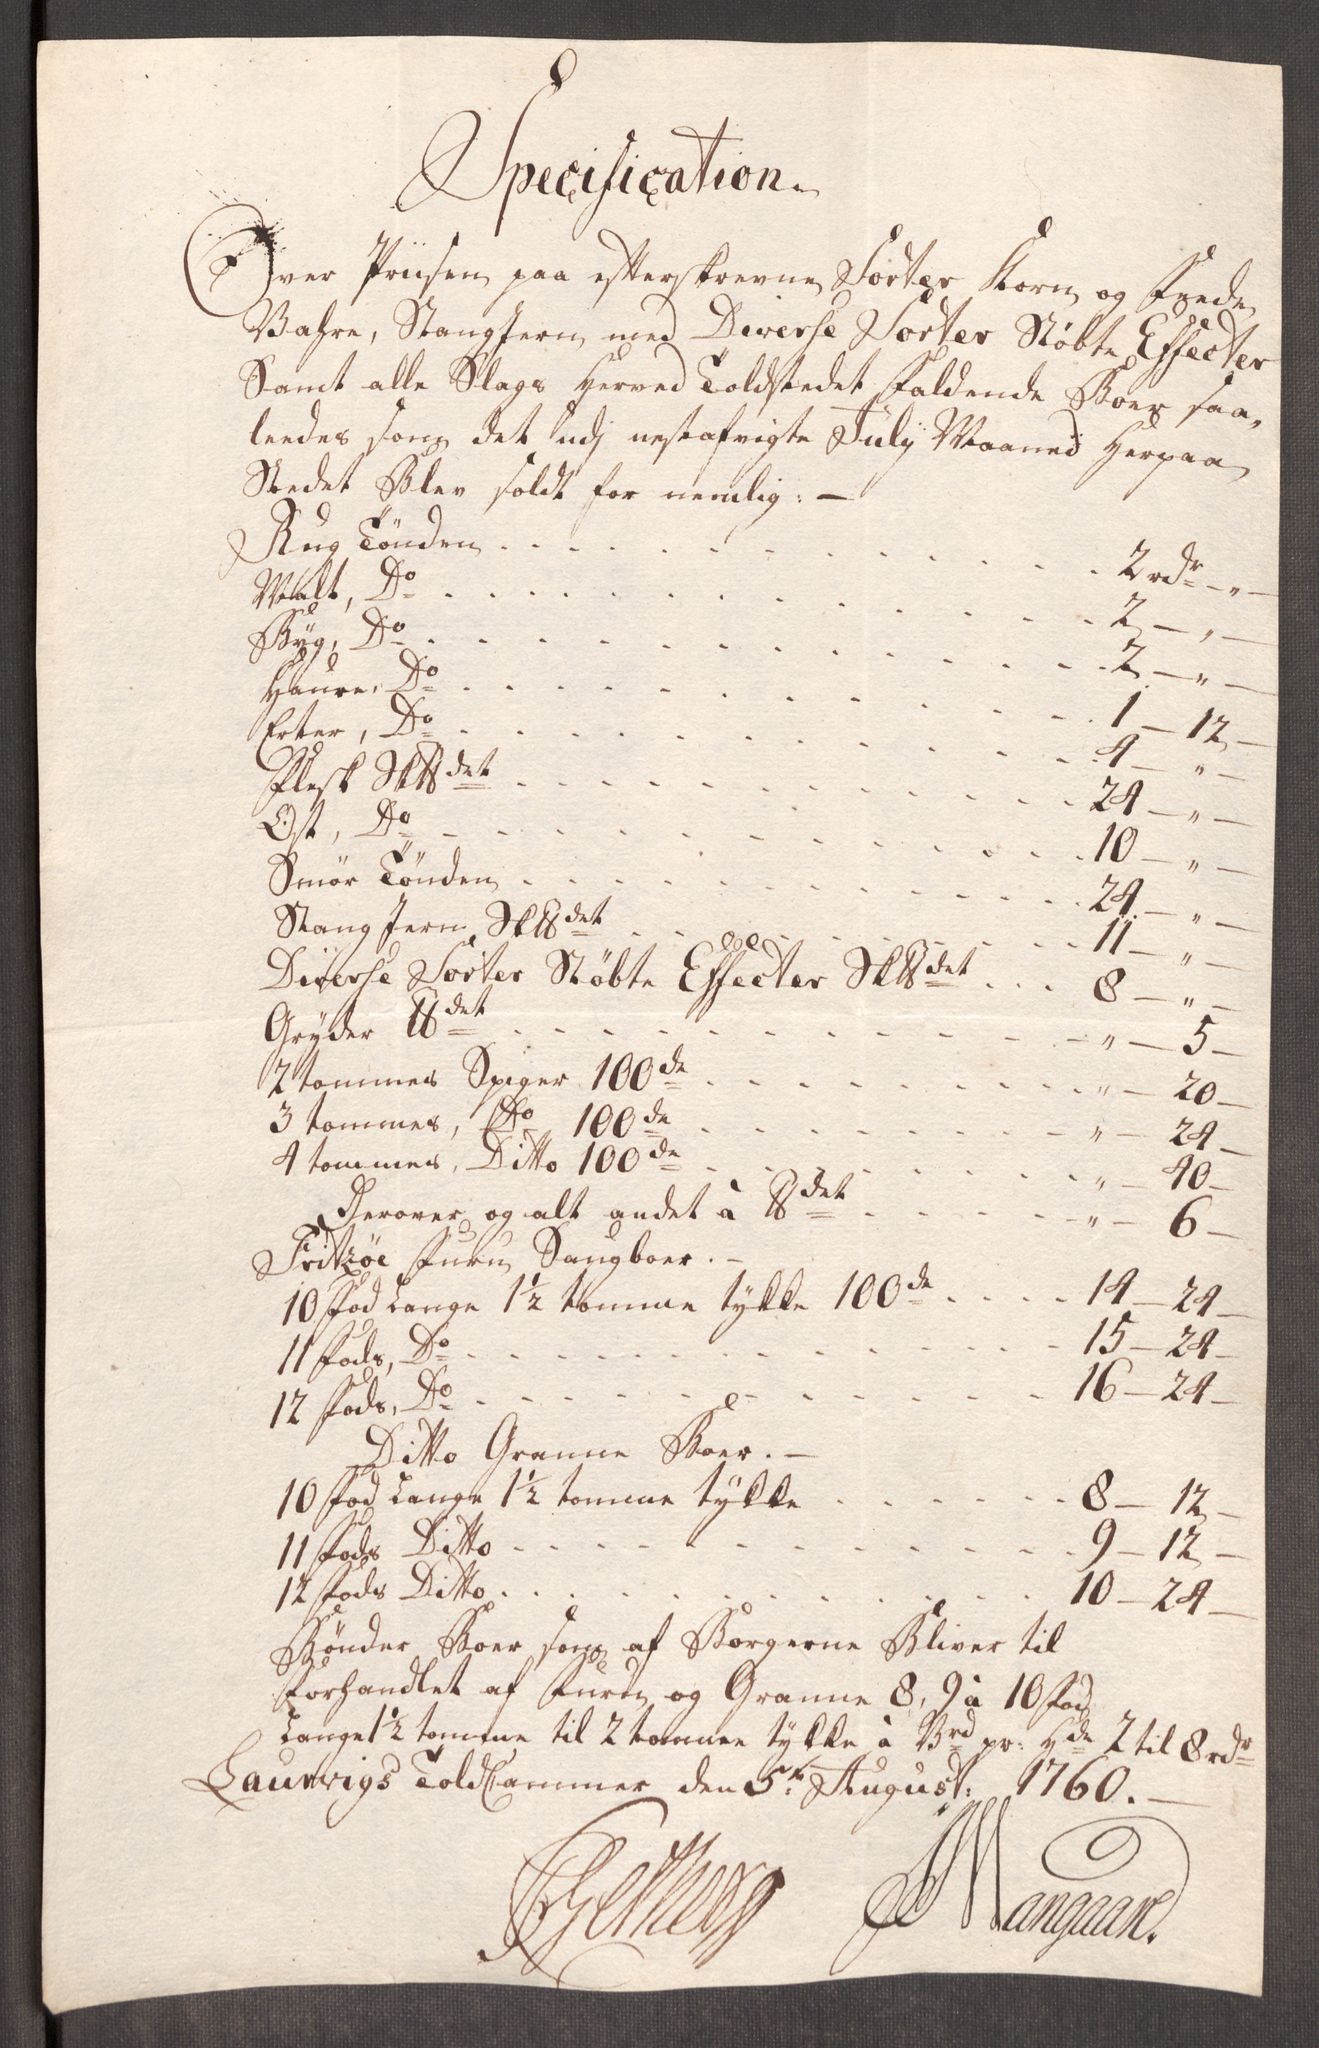 Specification.
Over Priisen paa efterskrevne Sorter Korn og Feede
Vahre, Stang Jern med Diverse Sorter Støbte Effecter
Samt alle Slags Herved Toldstedet Faldende Boer saa„
leedes som det udj nestafvigte Julij Maaned Herpaa
Stedet Blev soldt for nemlig: —
Rug Tönden . . . . . . . . . . 2 rdr — „ —
Malt, Do . . . . . . . . . . 2 — „ —
Bÿg, Do . . . . . . . . . . 2 — „ —
Haure, Do . . . . . . . . . . 1 — 12 —
Erter, Do . . . . . . . . . . 4 — „ —
Flesk Sk℔det . . . . . . . . . . 24 — „ —
Ost, Do . . . . . . . . . . 10 — „ —
Smör Tönden . . . . . . . . . . 24 — „ —
Stang Jern Sk℔det . . . . . . . . . . 11 — „ —
Diverse Sorter Støbte Effecter Sk℔det . . . 8 — „ —
Grÿder ℔det . . . . . . . . . . „ — 5 —
2 tommes Spiger 100de . . . . . . . . . . „ — 20 —
3 tommes, Do 100de . . . . . . . . . . „ — 24 —
4 tommes, Ditto 100de . . . . . . . . . . „ — 40 —
Derover og alt andet à ℔det . . . . . . „ — 6 —
Fritzöe Furu Saugboer. —
10 Fod Lange 1½ tomme tykke 100de . . . . 14 — 24 —
11 Fods, Do . . . . . . . . . . 15 — 24 —
12 Fods, Do . . . . . . . . . . 16 — 24 —
Ditto Granne Boer. —
10 Fod Lange 1½ tomme tykke . . . . . . 8 — 12 —
11 Fods Ditto . . . . . . . . . . 9 — 12 —
12 Fods Ditto . . . . . . . . . . 10 — 24 —
Bönder Boer som af Borgerne Bliver til
Forhandlet af Furu og Granne 8, 9 à 10 Fod
Lange 1½ tomme til 2 tomme tykke à Brd pr: Hde 2 til 8 rdr
Laurvigs Told Cammer den 5te August: 1760. —